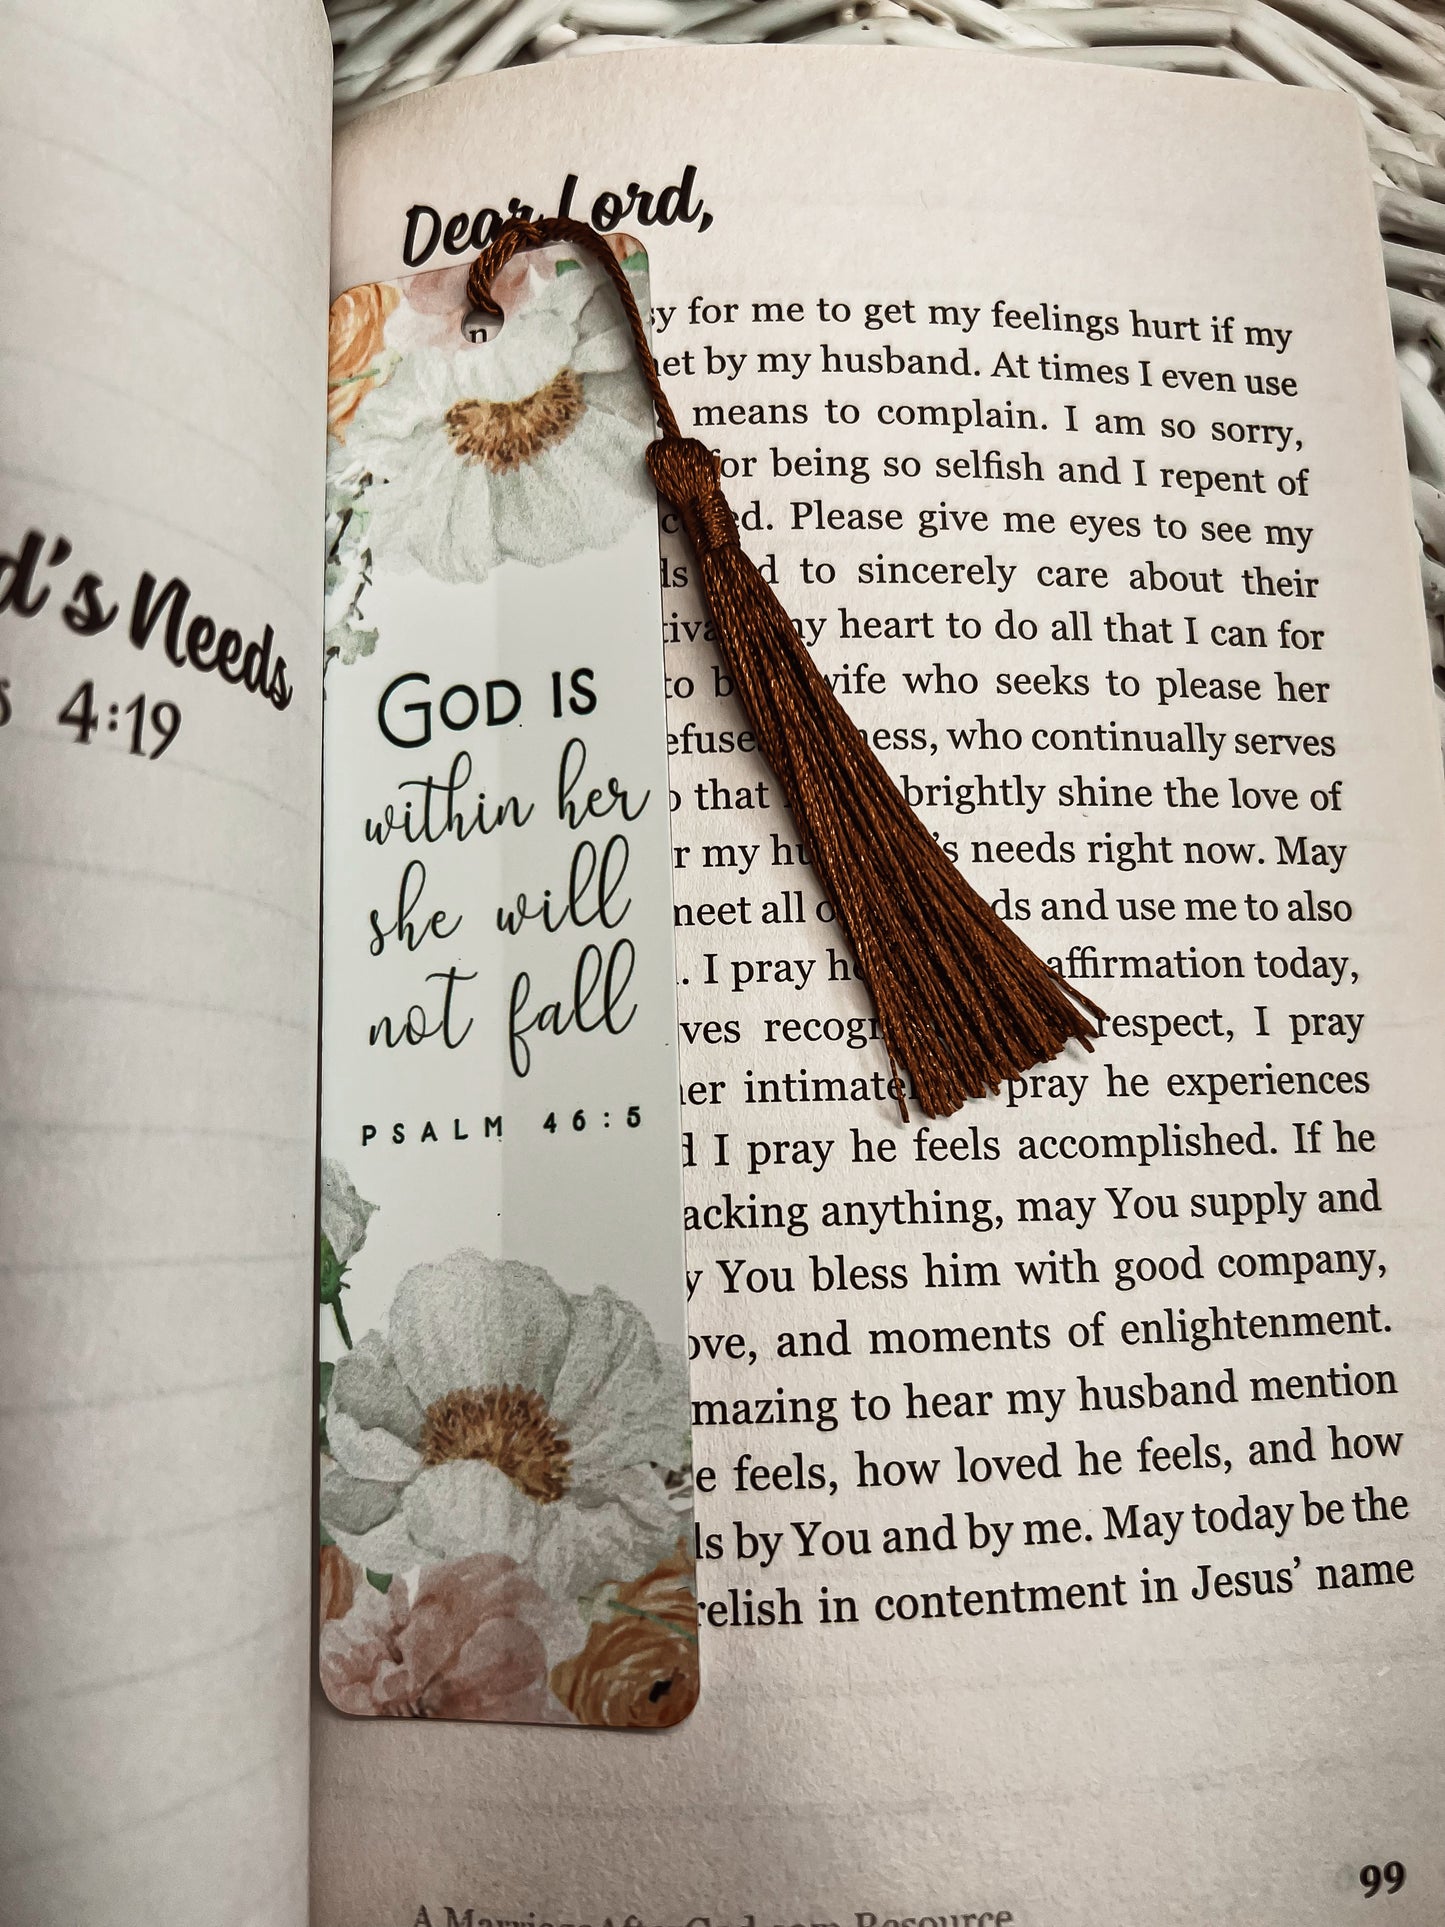 d's Needs
4:19
Dear Lord,
GOD IS
within her
she will
not fall
PSALM 46:5
n
for me to get my feelings hurt if my
by my husband. At times I even use
means to complain. I am so sorry,
for being so selfish and I repent of
Please give me eyes to see my
to sincerely care about their
my heart to do all that I can for
to wife who seeks to please her
who continually serves
that brightly shine the love of
my needs right now. May
meet all and use me to also
I pray affirmation today,
respect, I pray
intimate pray he experiences
I pray he feels accomplished. If he
acking anything, may You supply and
You bless him with good company,
ove, and moments of enlightenment.
mazing to hear my husband mention
feels, how loved he feels, and how
by You and by me. May today be the
relish in contentment in Jesus' name
99
A Marriage After God .com Resource